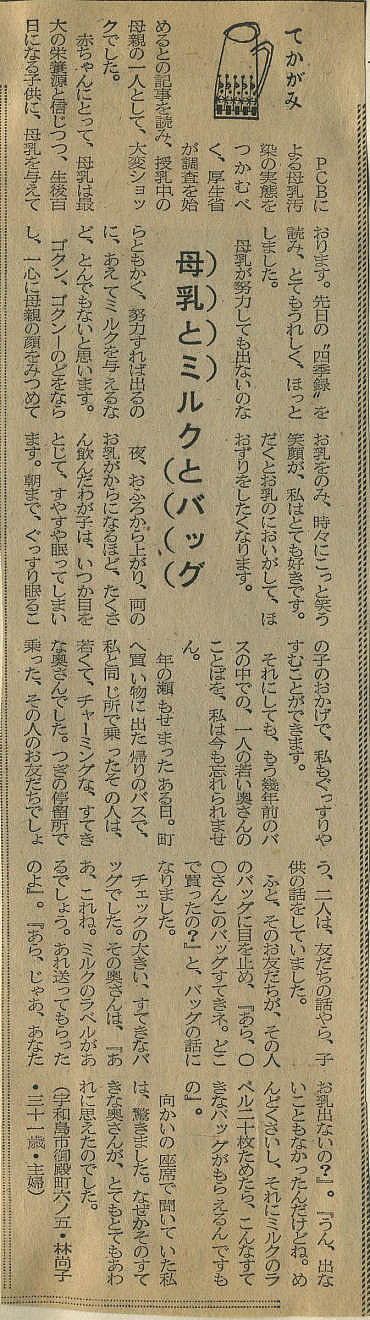 てかがみ
母乳とミルクとバッグ
PCBに
よる母乳汚
染の実態を
つかむべ
く、厚生省
が調査を始
めるとの記事を読み、授乳中の
母親の一人として、大変ショッ
クでした。
赤ちゃんにとって、母乳は最
大の栄養源と信じつつ、生後百
日になる子供に、母乳を与えて
おります。先日の〝四季録〟を
読み、とてもうれしく、ほっと
しました。
母乳が努力しても出ないのな
らともかく、努力すれば出るの
に、あえてミルクを与えるな
ど、とんでもないと思います。
ゴクン、ゴクンーのどをなら
し、一心に母親の顔をみつめて
お乳をのみ、時々にこっと笑う
笑顔が、私はとても好きです。
だくとお乳のにおいがして、ほ
おずりをしたくなります。
夜、おふろから上がり、両の
お乳がからになるほど、たくさ
ん飲んだわが子は、いつか目を
とじて、すやすや眠ってしまい
ます。朝まで、ぐっすり眠るこ
の子のおかげで、私もぐっすりや
すむことができます。
それにしても、もう幾年前のバ
スの中での、一人の若い奥さんの
ことばを、私は今も忘れられませ
ん。
年の瀬もせまったある日。町
へ買い物に出た帰りのバスで、
私と同じ所で乗ったその人は、
若くて、チャーミングな、すてき
な奥さんでした。つぎの停留所で
乗った、その人のお友だちでしょ
う、二人は、友だちの話やら、子
供の話をしていました。
ふと、そのお友だちが、その人
のバッグに目を止め、『あら、〇
〇さんこのバッグすてきネ。どこ
で買ったの?』と、バッグの話に
なりました。
チェックの大きい、すてきなバ
ッグでした。その奥さんは、『あ
あ、これね。ミルクのラベルがあ
るでしょう。あれ送ってもらった
のよ』。『あら、じゃあ、あなた
お乳出ないの?』。『うん、出な
いこともなかったんだけどね。め
んどくさいし、それにミルクのラ
ベル二十枚ためたら、こんなすて
きなバッグがもらえるんですも
の』。
向かいの座席で聞いていた私
は、驚きました。なぜかそのすて
きな奥さんが、とてもとてもあわ
れに思えたのでした。
(宇和島市御殿町六ノ五・林尚子
・三十一歳・主婦)